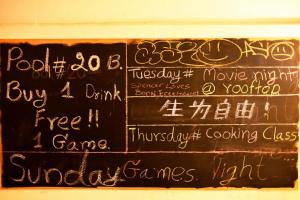 Pool # 20 B.
Buy 1 Drink
Free !!
1 Game.
Tuesday# Movie night
@ rooftop
生为自由!
Thursday# Cooking Class
Sunday Games Night